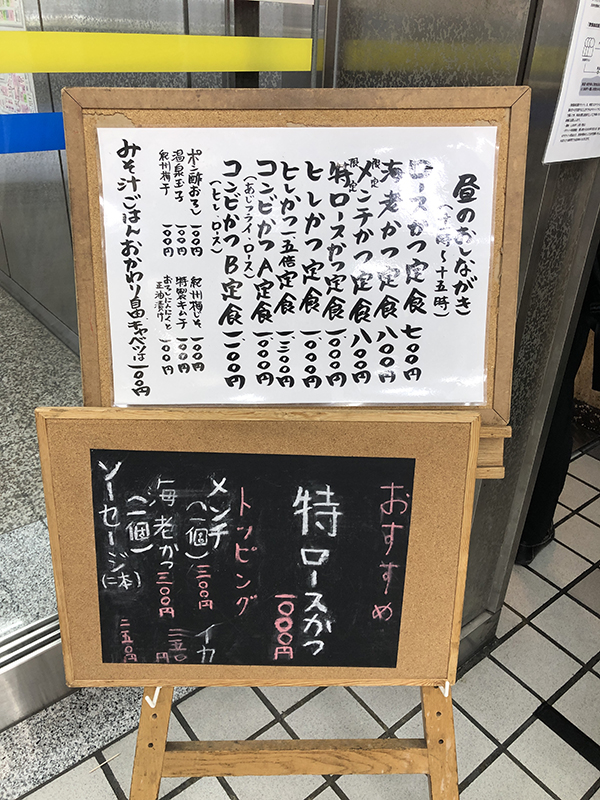 昼のおしながき
(十一時〜十五時)
ロースかつ定食 七〇〇円
海老かつ定食 八〇〇円
限定 メンチかつ定食 八〇〇円
限定 特ロースかつ定食 一、〇〇〇円
ヒレかつ定食 一、〇〇〇円
ヒレかつ一.五倍定食 一、三〇〇円
コンビかつA定食 一、〇〇〇円
(あじフライ・ロース)
コンビかつB定食 一、一〇〇円
(ヒレ・ロース)
ポン酢おろし 一〇〇円
温泉玉子 一〇〇円
紀州梅干
紀州梅しそ 一〇〇円
特製キムチ 一〇〇円
おろしにんにくと正油漬け 一〇〇円
みそ汁ごはんおかわり自由 キャベツは一〇〇円
おすすめ
特ロースかつ
一〇〇〇円
トッピング
メンチ(一個) 三〇〇円
海老かつ(一個) 三〇〇円
イカ 二五〇円
ソーセージ(二本) 二五〇円